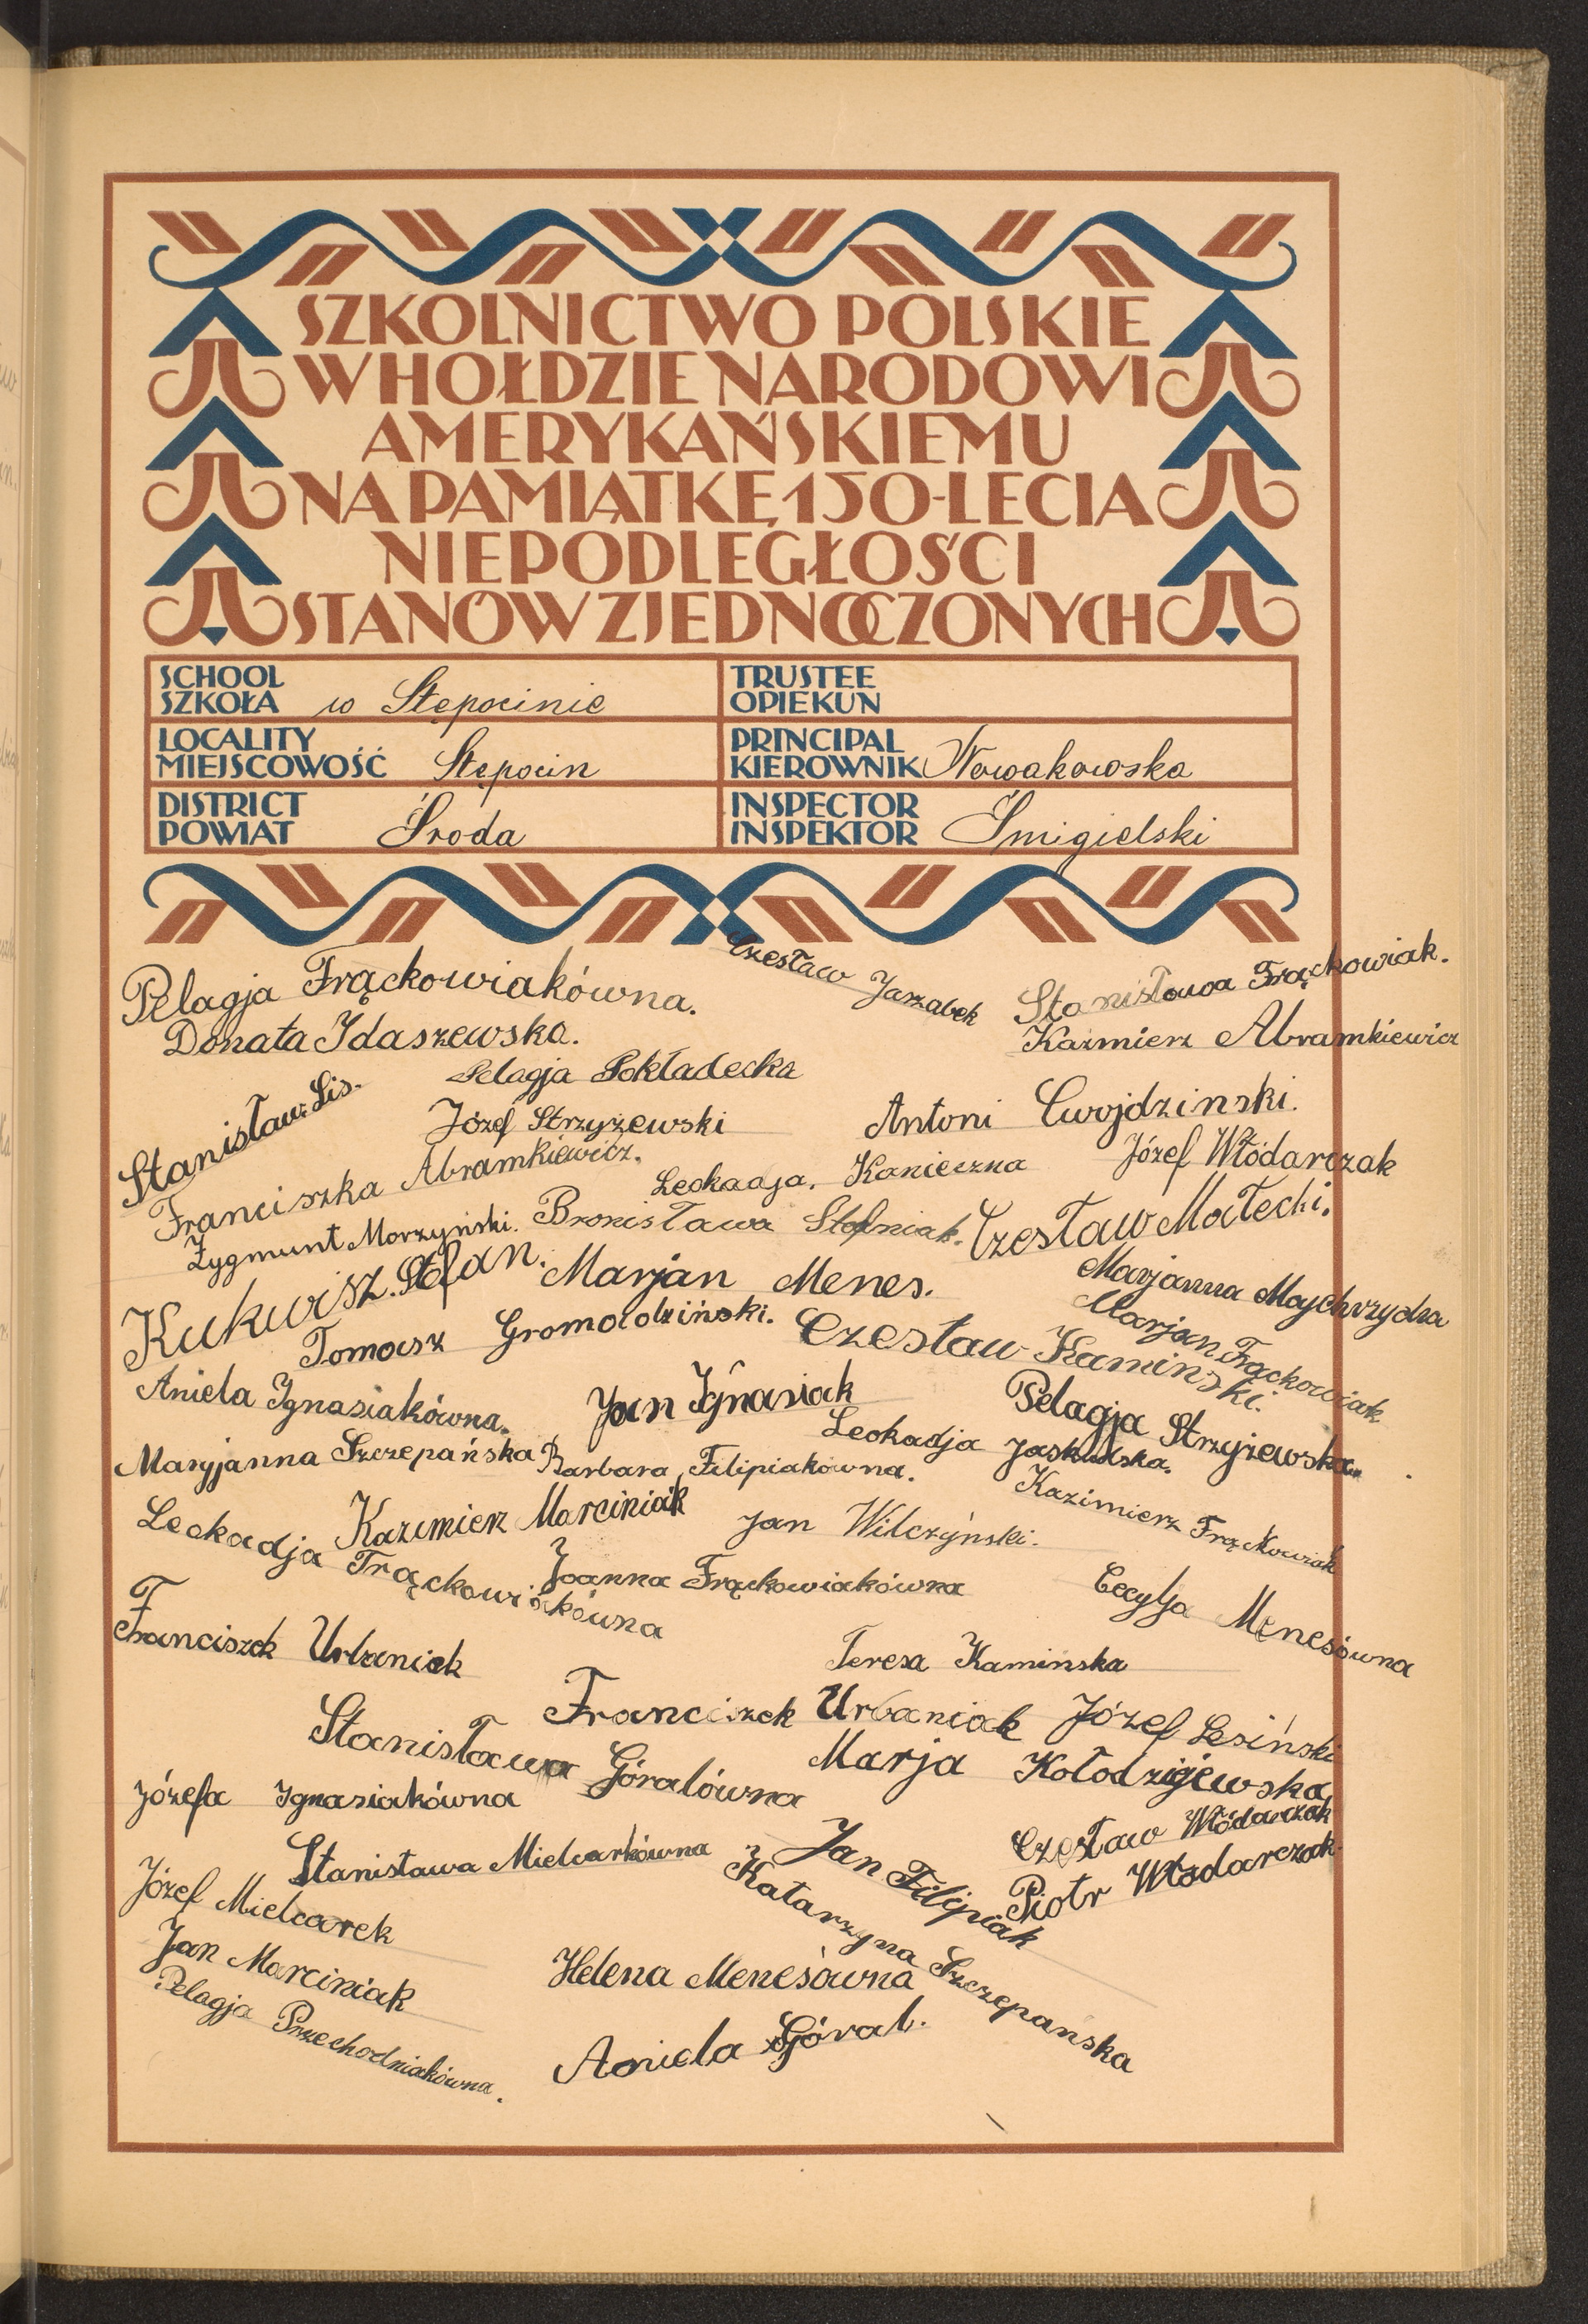 SZKOLNICTWO POLSKIE
W HOŁDZIE NARODOWI
AMERYKAŃSKIEMU
NA PAMIĄTKĘ 150-LECIA
NIEPODLEGŁOŚCI
STANÓW ZJEDNOCZONYCH
SCHOOL
SZKOŁA w Stępocinie
TRUSTEE
OPIEKUN
LOCALITY
MIEJSCOWOŚĆ Stępocin
PRINCIPAL
KIEROWNIK Nowakowska
DISTRICT
POWIAT Środa
INSPECTOR
INSPEKTOR Śmigielski
Pelagja Frąckowiakówna.
Czesław Jarzabek
Stanisława Frąckowiak.
Donata Idaszewska.
Kazmierz Abramkiewicz
Pelagja Pokładecka
Stanisław Lis.
Józef Strzyżewski
Antoni Cwojdzinski.
Franciszka Abramkiewicz.
Leokadja. Kanieczna
Józef Włódarczak
Zygmunt Morzyński.
Bronisława Stelniak.
Czesław Małecki.
Kukwisz. Stefan.
Marjan Menes.
Marjanna Majchrzycka
Tomasz Gromadziński.
Czesław Kaminski.
Marjan Frąckowiak
Aniela Ignasiakówna.
Jan Ignasiak
Pelagja Strzyżewska.
Leokadja Jaskulska.
Maryjanna Szczepańska
Barbara Filipiakówna.
Kazimierz Frąckowiak
Kazimierz Marciniak
Jan Wilczyński.
Leokadja Frąckowiakówna
Joanna Frąckowiakówna
Cecylja Menesówna
F
Franciszek Urbaniak
Teresa Kamińska
Franciszek Urbaniak
Józef Lesiński
Stanisława Góralówna
Marja Kołodziejewska
Józefa Ignasiakówna
Czesław Włódarczak
Stanisława Mielcarkówna
Jan Filipiak
Piotr Włodarczak
Józef Mielcarek
Katarzyna Szczepańska
Jan Marciniak
Helena Menesówna
Pelagja Przechodniakówna.
Aniela Góral.